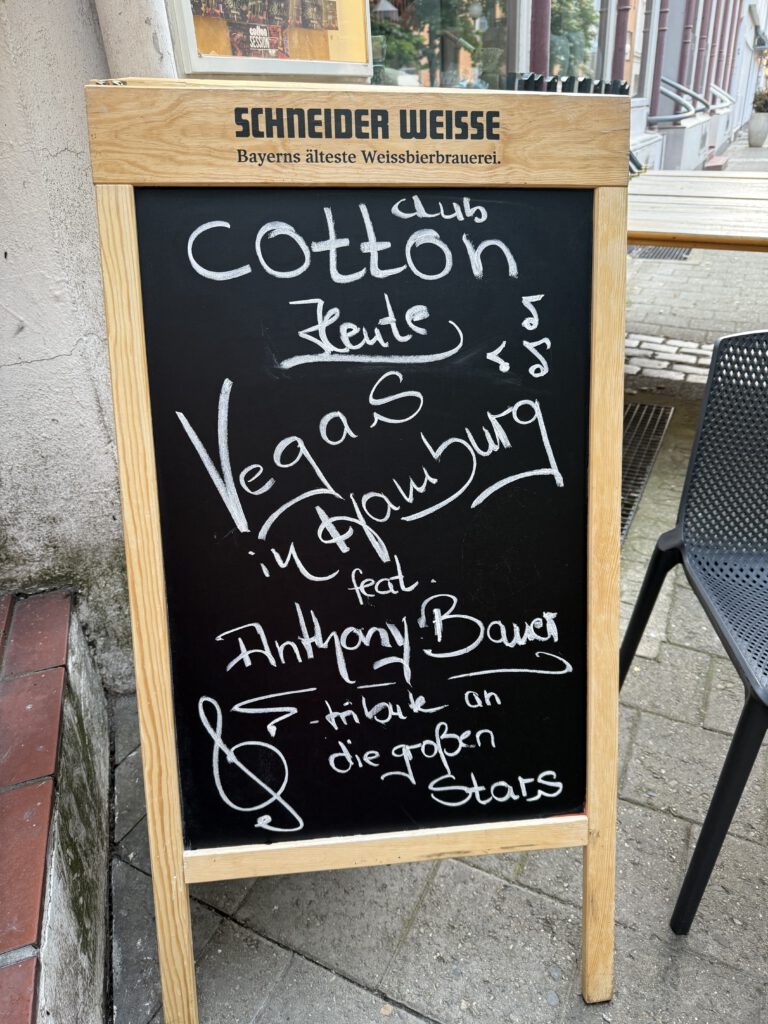 SCHNEIDER WEISSE
Bayerns älteste Weissbierbrauerei.
club
cotton
Heute
Vegas
in Hamburg
feat.
Anthony Bauer
-tribute an
die großen
Stars